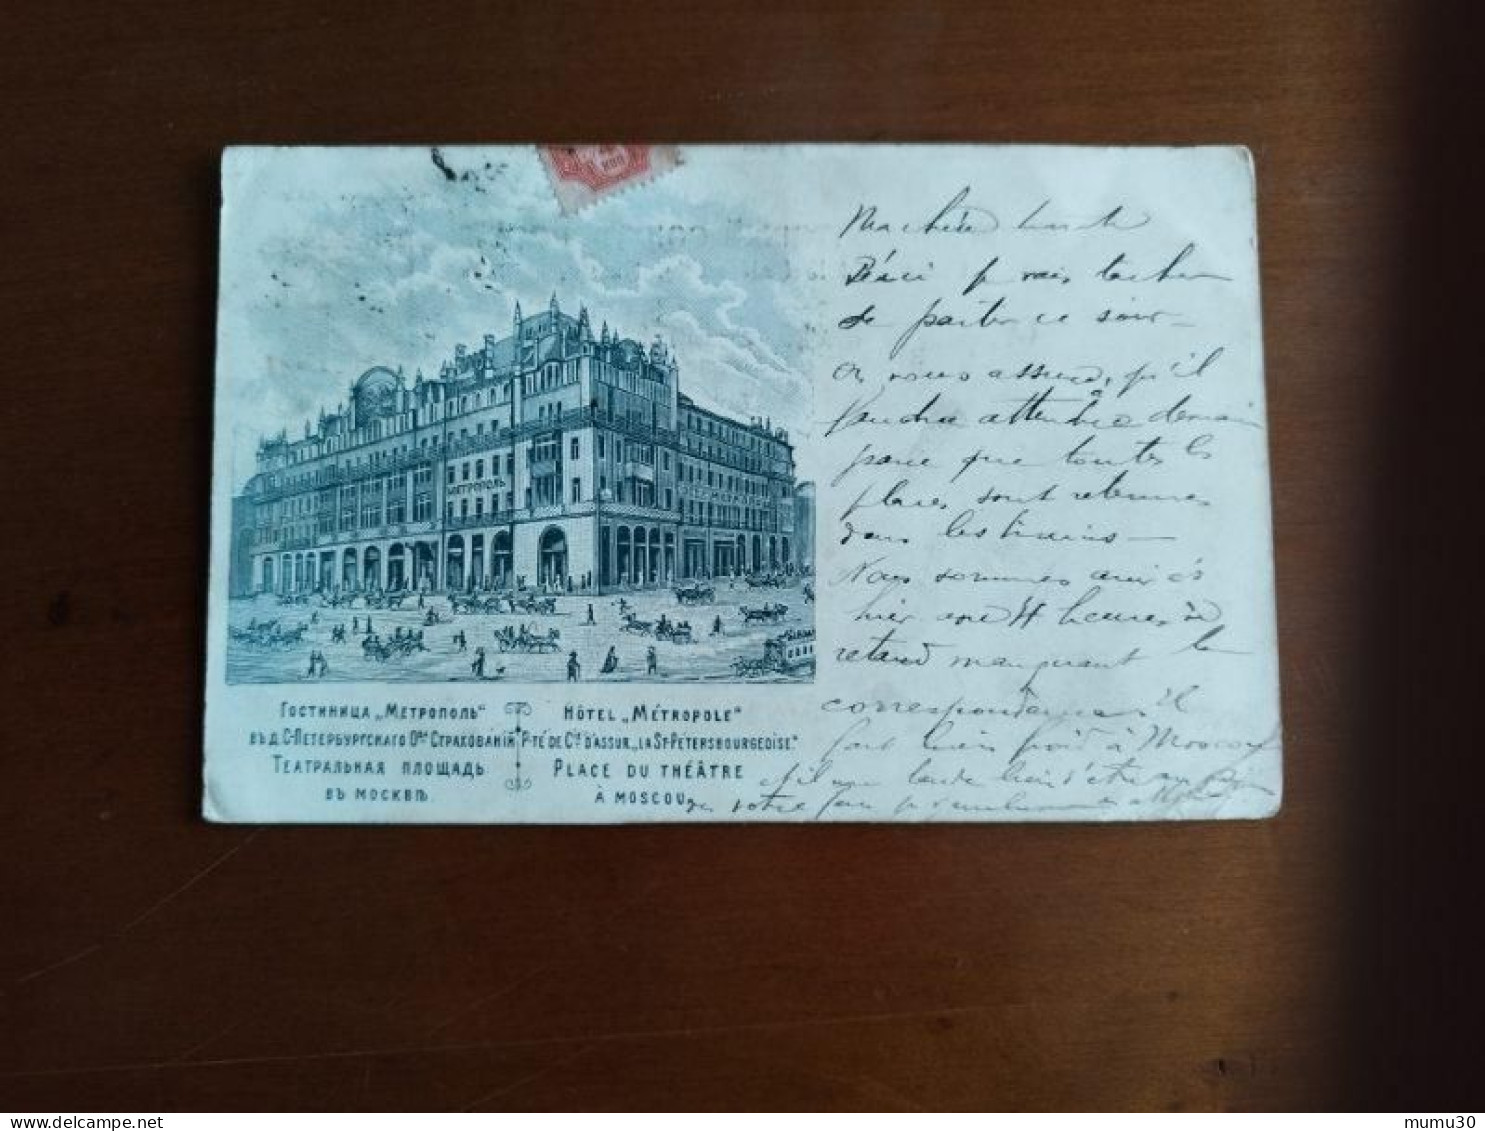 4
КОП
МЕТРОПОЛЬ
ГОСТИННИЦА „МЕТРОПОЛЬ“
ВЪ Д. С-ПЕТЕРБУРГСКАГО Общ СТРАХОВАНІЙ
ТЕАТРАЛЬНАЯ ПЛОЩАДЬ
ВЪ МОСКВѢ
HÔTEL „MÉTROPOLE“
P-TÉ DE Cie D'ASSUR. „LA ST-PETERSBOURGEOISE.“
PLACE DU THÉÂTRE
À MOSCOU
Ma chère tante
D'ici je vais tâcher
de partir ce soir —
On nous assure qu'il
faudra attendre demain
parce que toutes les
places sont retenues
dans les trains —
Nous sommes arrivés
hier avec 4 heures de
retard manquant la
correspondance il
fait bien froid à Moscou
de votre
www.delcampe.net
mumu30